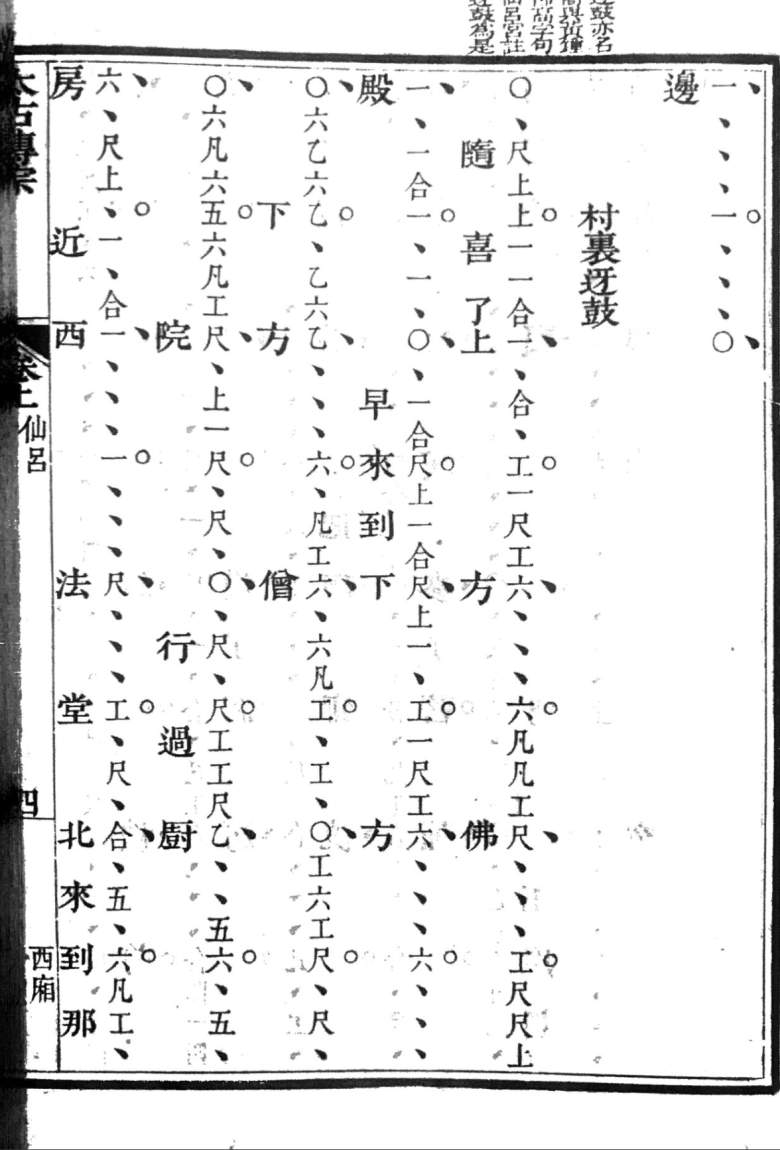 一、、、一、、、〇
邊
村裏迓鼓
〇、尺上上一一合一、合、工一尺工六、、、六凡凡工尺、、、工尺尺上
隨喜了上方佛
一、一合一、一、〇、一合尺上一合尺上一、工一尺工六、、、六、、、
殿早來到下方
〇六乙六乙、乙六乙、、、六、凡工六、六凡工、工、〇工六工尺、尺、
下方僧
〇六凡六五六凡工尺、上一尺、尺、〇、尺、尺工工尺乙、、五六、五、
院行過廚
六、尺上、一、合一、、、一、、、尺、、、工、尺、合、五、六凡工、
房近西法堂北來到那
太古傳宗
卷上
仙呂
四
西廂